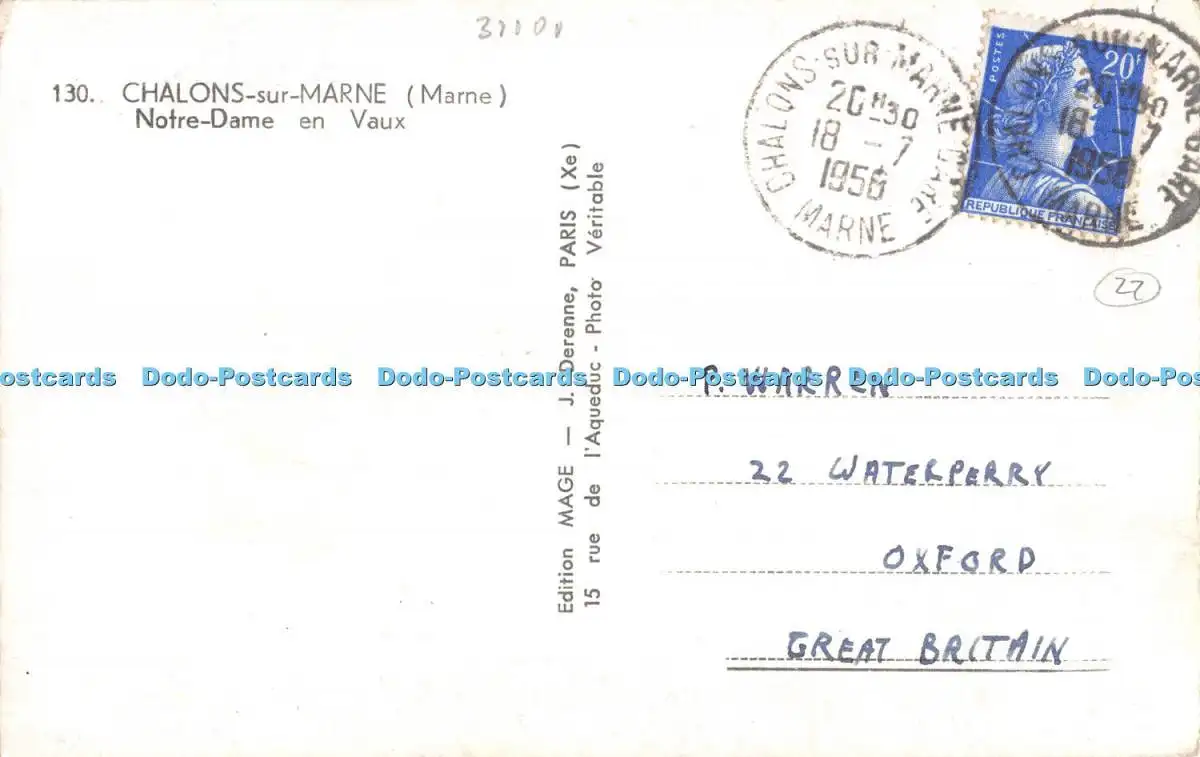 130. CHALONS-sur-MARNE (Marne)
Notre-Dame en Vaux
Edition MAGE — J. Derenne, PARIS (Xe)
15 rue de l'Aqueduc - Photo Véritable
CHALONS-SUR-MARNE GARE
20H30
18 - 7
1956
MARNE
POSTES
20F
REPUBLIQUE FRANÇAISE
CHALONS-SUR-MARNE GARE
20H30
18 - 7
1956
MARNE
22
ostcards Dodo-Postcards Dodo-Postcards Dodo-Postcards Dodo-Postcards Dodo-Post
P. WARREN
22 WATERPERRY
OXFORD
GREAT BRITAIN